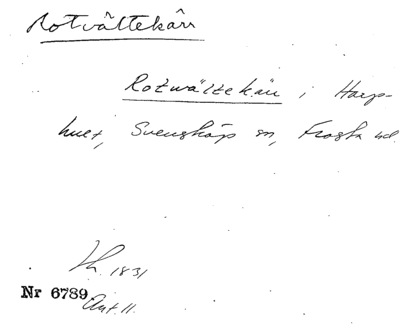 Rotvältekärr
Rotwältekärr i Harp-
huet, Svensköp sn, Frosta hd.
1831
Nr 6789
Akt 11.